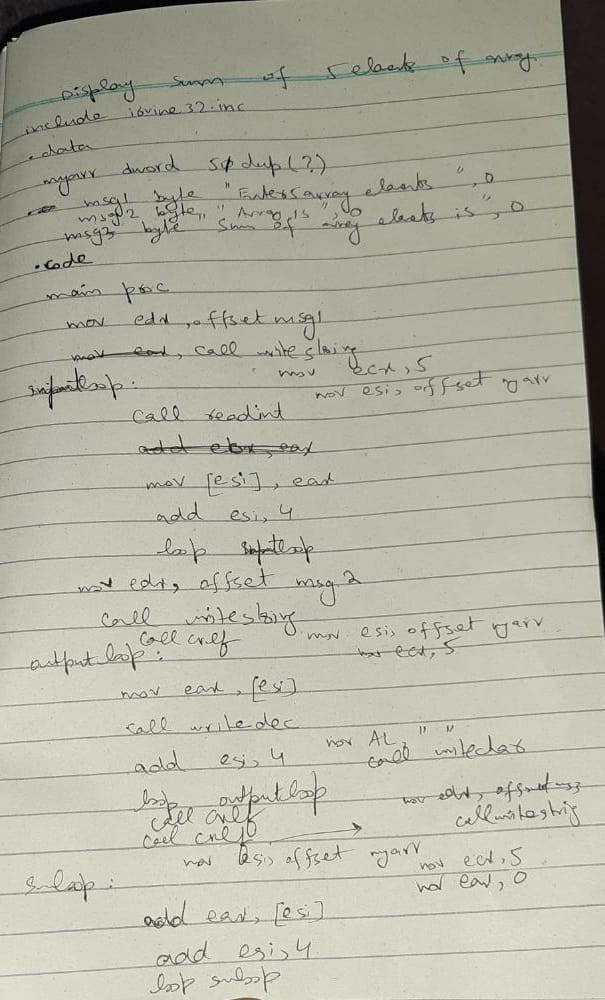 Display sum of 5 elaents of array
include irvine32.inc
.data
myarr dword 5 dup(?)
msg1 byte "Enter 5 array elaents ", 0
msg2 byte "Array is ", 0
msg3 byte "Sum of array elaents is", 0
.code
main proc
mov edx, offset msg1
mov eax, call writestring
mov ecx, 5
mov esi, offset myarr
inputloop:
call readint
add ebx, eax
mov [esi], eax
add esi, 4
loop inputloop
mov edx, offset msg2
call writestring
call crlf
mov esi, offset myarr
mov ecx, 5
outputloop:
mov eax, [esi]
call writedec
mov AL, " "
add esi, 4
call writechar
loop outputloop
call crlf
call crlf
mov edx, offset msg3
call writestring
mov esi, offset myarr
mov ecx, 5
mov eax, 0
suloop:
add eax, [esi]
add esi, 4
loop suloop